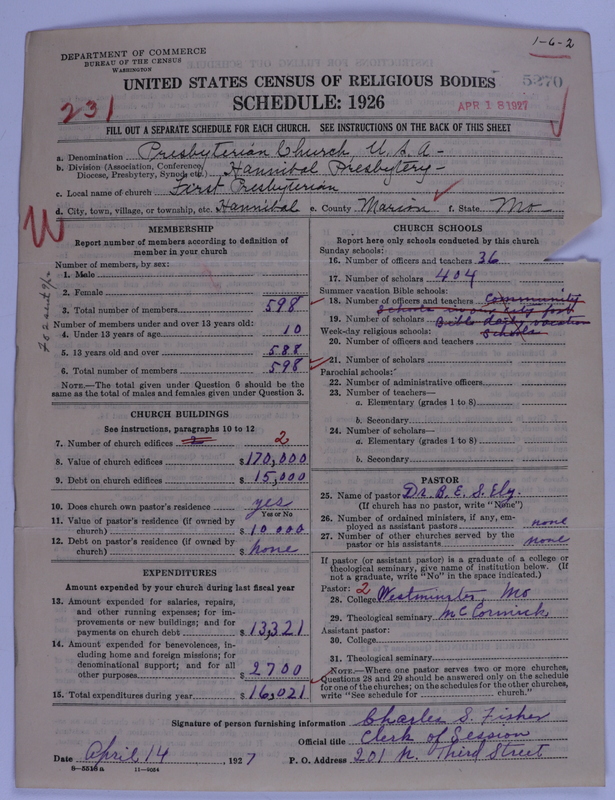 1-6-2
DEPARTMENT OF COMMERCE
BUREAU OF THE CENSUS
WASHINGTON
UNITED STATES CENSUS OF RELIGIOUS BODIES
5270
SCHEDULE: 1926
231
APR 18 1927
FILL OUT A SEPARATE SCHEDULE FOR EACH CHURCH. SEE INSTRUCTIONS ON THE BACK OF THIS SHEET
a. Denomination Presbyterian Church, U.S.A-
b. Division (Association, Conference, Diocese, Presbytery, Synod, etc.) Hannibal Presbytery-
c. Local name of church First Presbyterian
d. City, town, village, or township, etc. Hannibal e. County Marion f. State Mo-
W
MEMBERSHIP
Report number of members according to definition of
member in your church
Number of members, by sex:
1. Male
2. Female
3. Total number of members 598
Number of members under and over 13 years old:
4. Under 13 years of age 10
5. 13 years old and over 588
6. Total number of members 598
NOTE.—The total given under Question 6 should be the
same as the total of males and females given under Question 3.
CHURCH BUILDINGS
See instructions, paragraphs 10 to 12
7. Number of church edifices 2 2
8. Value of church edifices $170,000
9. Debt on church edifices $15,000
10. Does church own pastor's residence? yes
Yes or No
11. Value of pastor's residence (if owned by
church) $10 000
12. Debt on pastor's residence (if owned by
church) $ none
EXPENDITURES
Amount expended by your church during last fiscal year
13. Amount expended for salaries, repairs,
and other running expenses; for im-
provements or new buildings; and for
payments on church debt $13,321
14. Amount expended for benevolences, in-
cluding home and foreign missions; for
denominational support; and for all
other purposes $2700
15. Total expenditures during year $16,021
CHURCH SCHOOLS
Report here only schools conducted by this church
Sunday schools:
16. Number of officers and teachers 36
17. Number of scholars 404
Summer vacation Bible schools:
18. Number of officers and teachers Community
Schools in our city for
19. Number of scholars Bible daily vacation
Week-day religious schools: Schools
20. Number of officers and teachers
21. Number of scholars
Parochial schools:
22. Number of administrative officers
23. Number of teachers—
a. Elementary (grades 1 to 8)
b. Secondary
24. Number of scholars—
a. Elementary (grades 1 to 8)
b. Secondary
PASTOR
25. Name of pastor Dr. B. E. S. Ely.
(If church has no pastor, write "None")
26. Number of ordained ministers, if any, em-
ployed as assistant pastors none
27. Number of other churches served by the
pastor or his assistants none
If pastor (or assistant pastor) is a graduate of a college or
theological seminary, give name of institution below. (If
not a graduate, write "No" in the space indicated.)
Pastor: 2
28. College Westminster Mo
29. Theological seminary McCormick
Assistant pastor:
30. College
31. Theological seminary
NOTE.—Where one pastor serves two or more churches,
Questions 28 and 29 should be answered only on the schedule
for one of the churches; on the schedules for the other churches,
write "See schedule for church."
Signature of person furnishing information Charles S. Fisher
Official title Clerk of Session
Date April 14 1927 P. O. Address 201 N. Third Street
8—5518a 11—9024